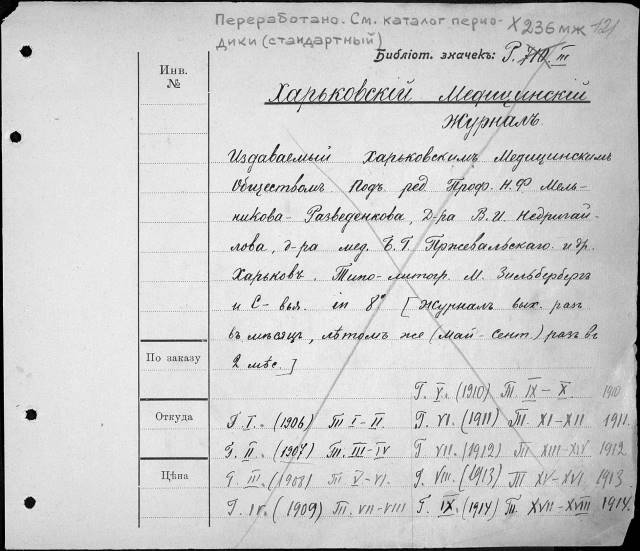 Переработано. См. каталог перио-
дики (стандартный)
X236мж 121
Библіот. значекъ: Р. 710. III
Инв.
№
Харьковскій Медицинскій
Журналъ.
Издаваемый Харьковскимъ Медицинскимъ
Обществомъ Подъ ред. Проф. Н.Ф. Мель-
никова-Разведенкова, Д-ра В.И. Недригай-
лова, д-ра мед. Б.Г. Пржевальскаго и др.
Харьковъ. Типо-литогр. М. Зильбербергъ
и С-вья. in 8° [Журналъ вых. разъ
въ мѣсяцъ, лѣтомъ же (май-сент.) разъ въ
2 мѣс.]
По заказу
Откуда
Цѣна
Г. V. (1910) Т.Т. IX-X. 1910
Г. I. (1906) Т.Т. I-II. Г. VI. (1911) Т.Т. XI-XII 1911.
Г. II. (1907) Т.Т. III-IV Г. VII. (1912) Т.Т. XIII-XIV 1912
Г. III. (1908) Т.Т. V-VI. Г. VIII. (1913) Т.Т. XV-XVI. 1913.
Г. IV. (1909) Т.Т. VII-VIII Г. IX. (1914) Т.Т. XVII-XVIII 1914.